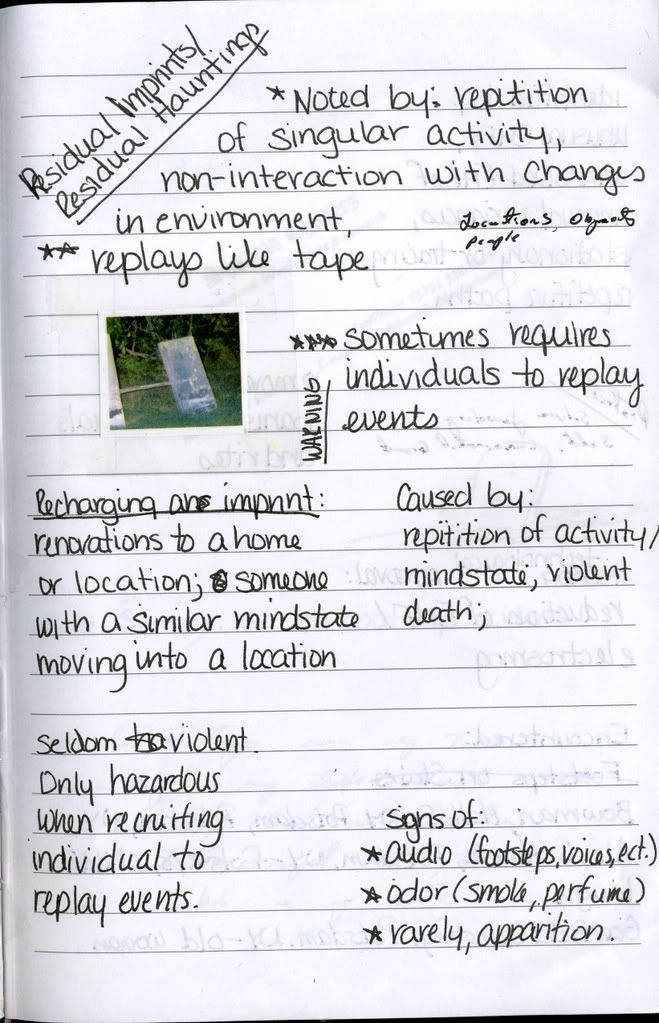 Residual Imprints/
Residual Hauntings
* Noted by: repitition
of singular activity,
non-interaction with changes
in environment,
Locations, objects
people
** replays like tape
*** sometimes requires
individuals to replay
events
WARNING
Recharging an imprint:
renovations to a home
or location; someone
with a similar mindstate
moving into a location
Caused by:
repitition of activity/
mindstate, violent
death;
seldom violent.
Only hazardous
when recruiting
individual to
replay events.
Signs of:
* audio (footsteps, voices, ect.)
* odor (smoke, perfume)
* rarely, apparition.